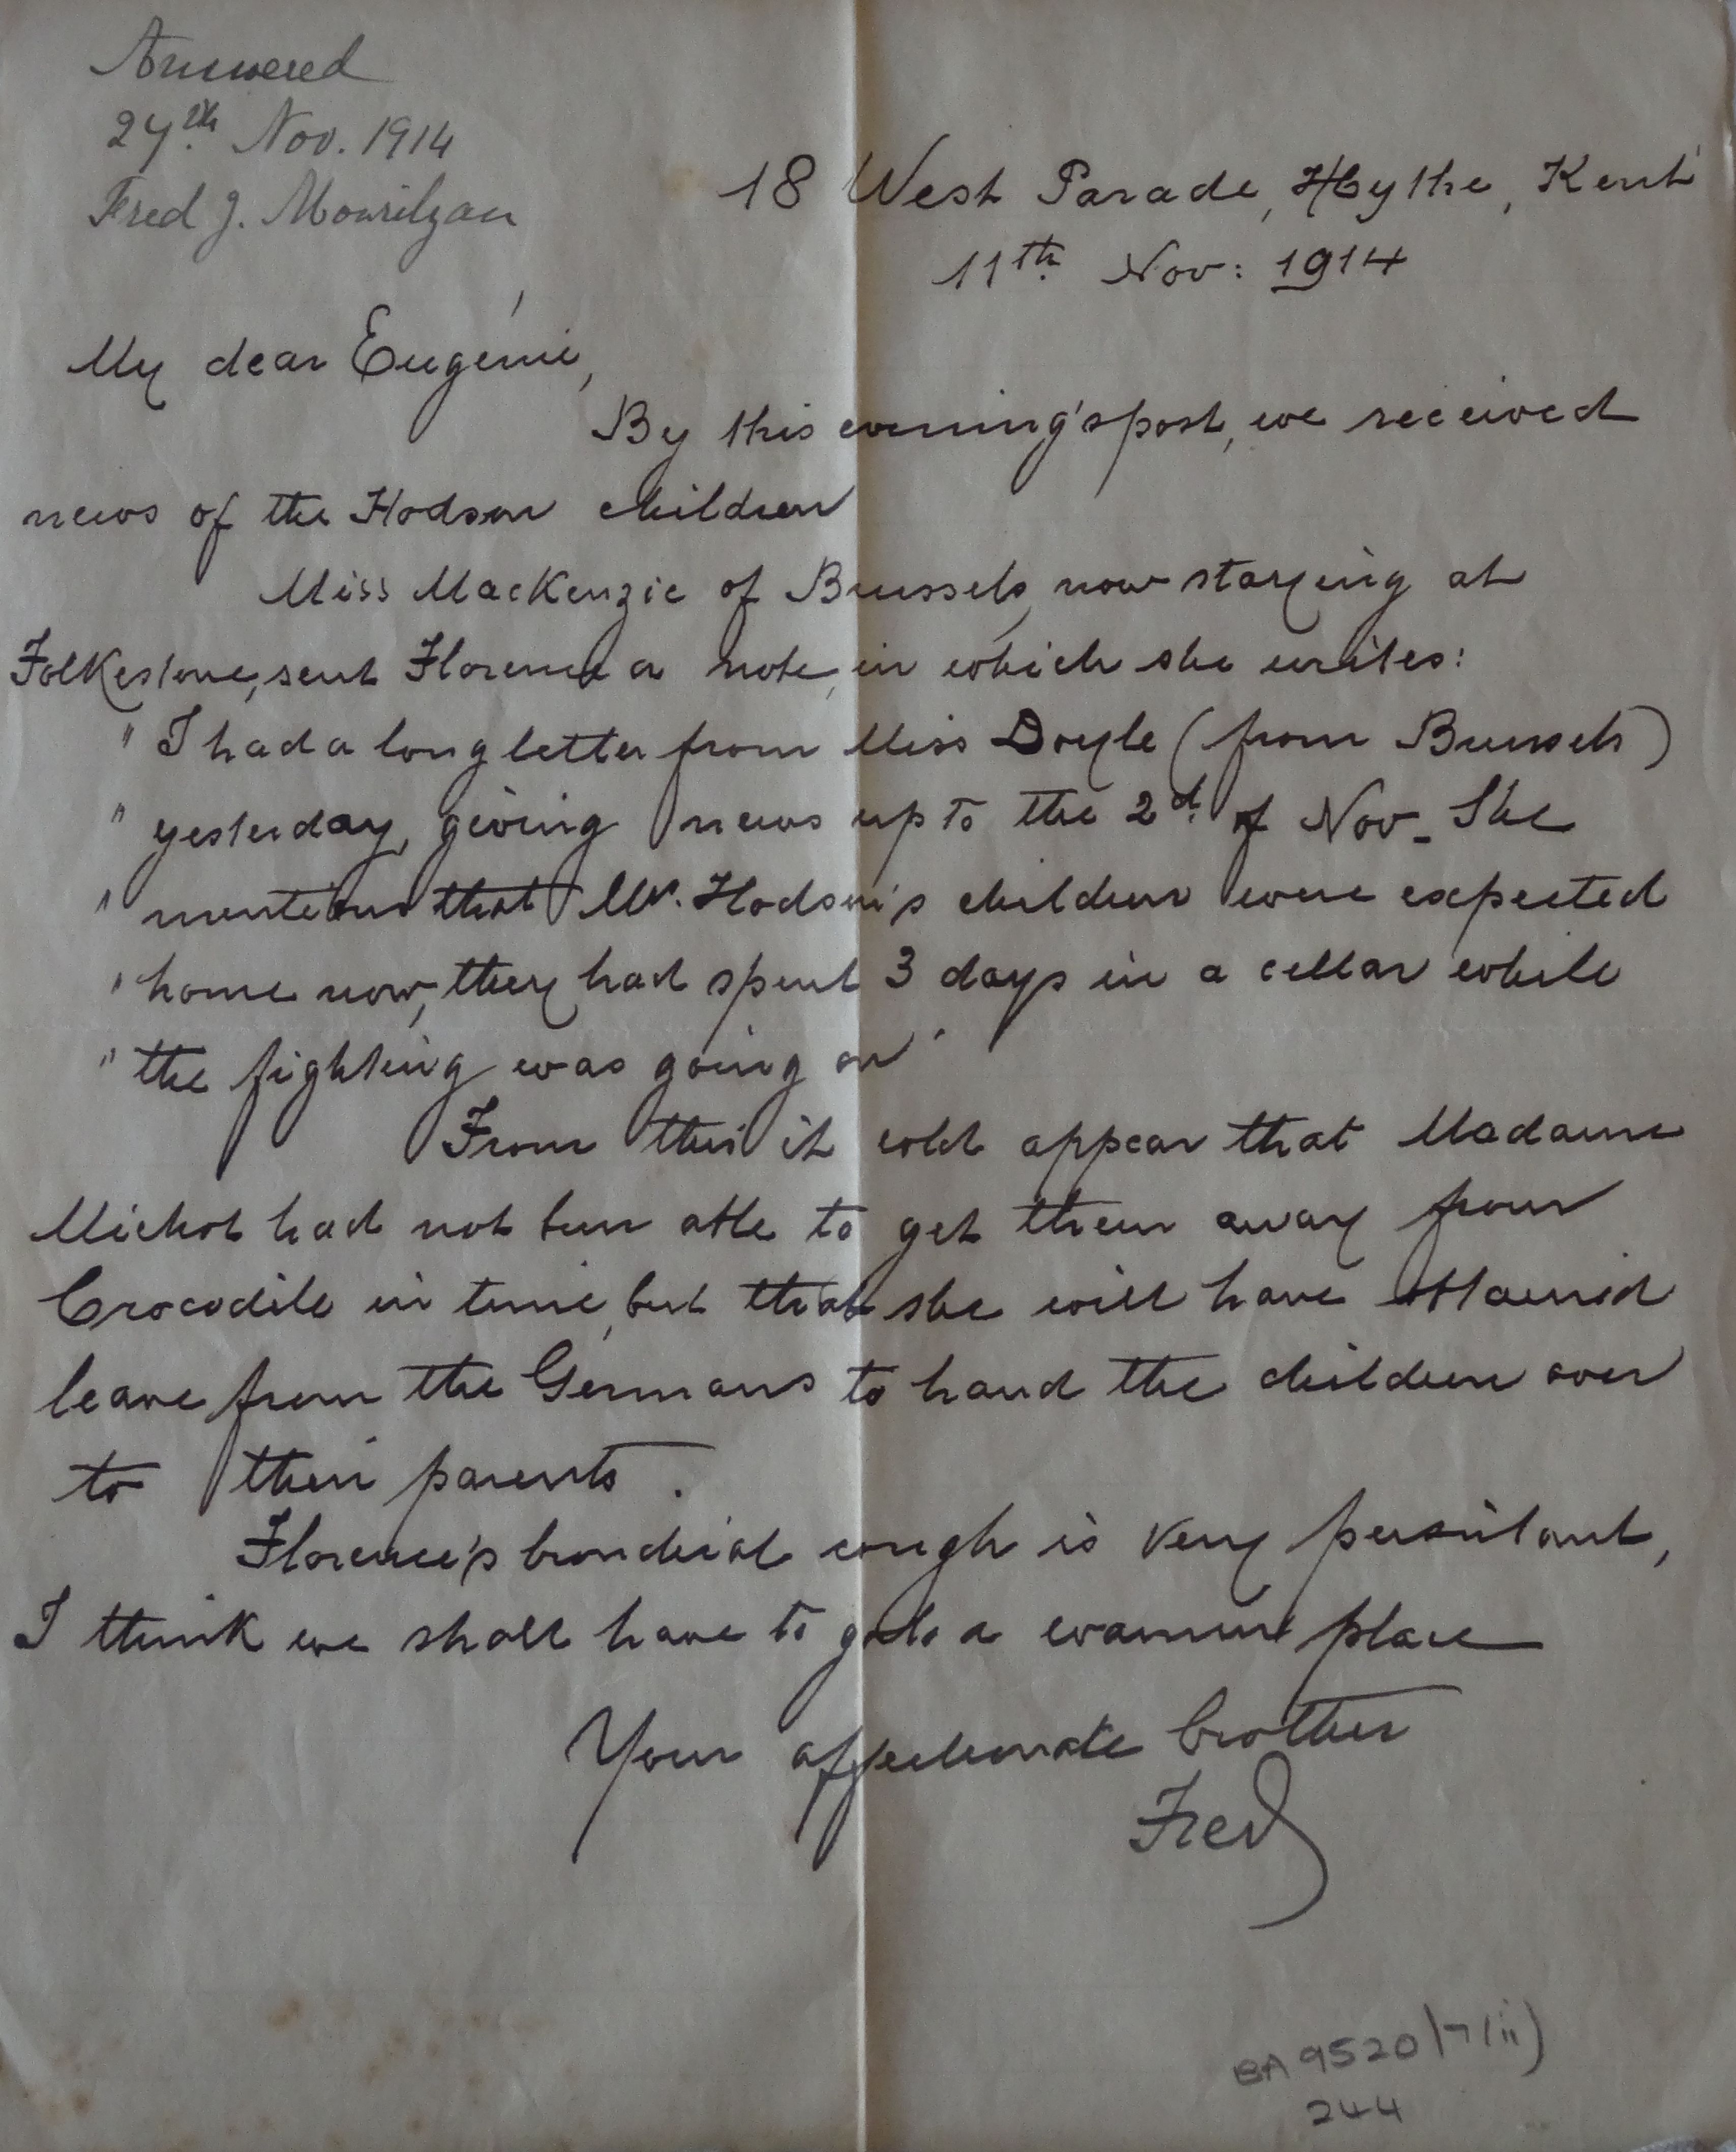 Answered
27th Nov. 1914
Fred J.
18 West Parade, Hythe, Kent
11th Nov: 1914
My dear Eugénie,
By this evening's post, we received
news of the Hodson children
Miss MacKenzie of Brussels, now staying at
Folkestone, sent Florence a note, in which she writes:
" I had a long letter from Miss Doyle (from Brussels)
" yesterday, giving news up to the 2d. of Nov. She
" mentions that Mrs. Hodson's children were expected
" home now, they had spent 3 days in a cellar while
" the fighting was going on "
From this it wld appear that Madame
Michot had not been able to get them away from
Crocodile in time, but that she will have obtained
leave from the Germans to hand the children over
to their parents.
Florence's bronchial cough is very persistant,
I think we shall have to go to a warmer place
Your affectionate brother
Fred
BA 9520/7(ii)
244